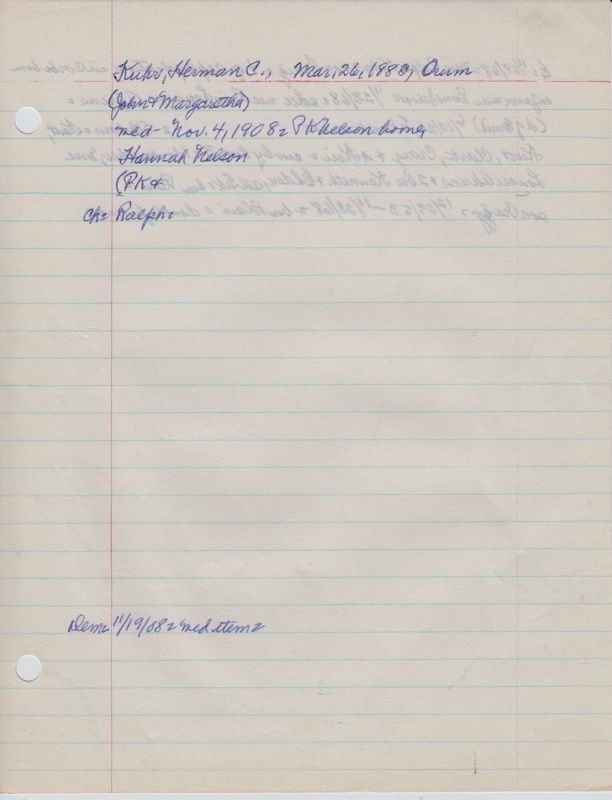 Kuhr, Herman C., Mar, 26, 1880, Orum
(John & Margaretha)
med - Nov. 4, 1908 = P K Nelson home,
Hannah Nelson
(PK &
Ch = Ralph =
Dem = 11/19/08 = med item =